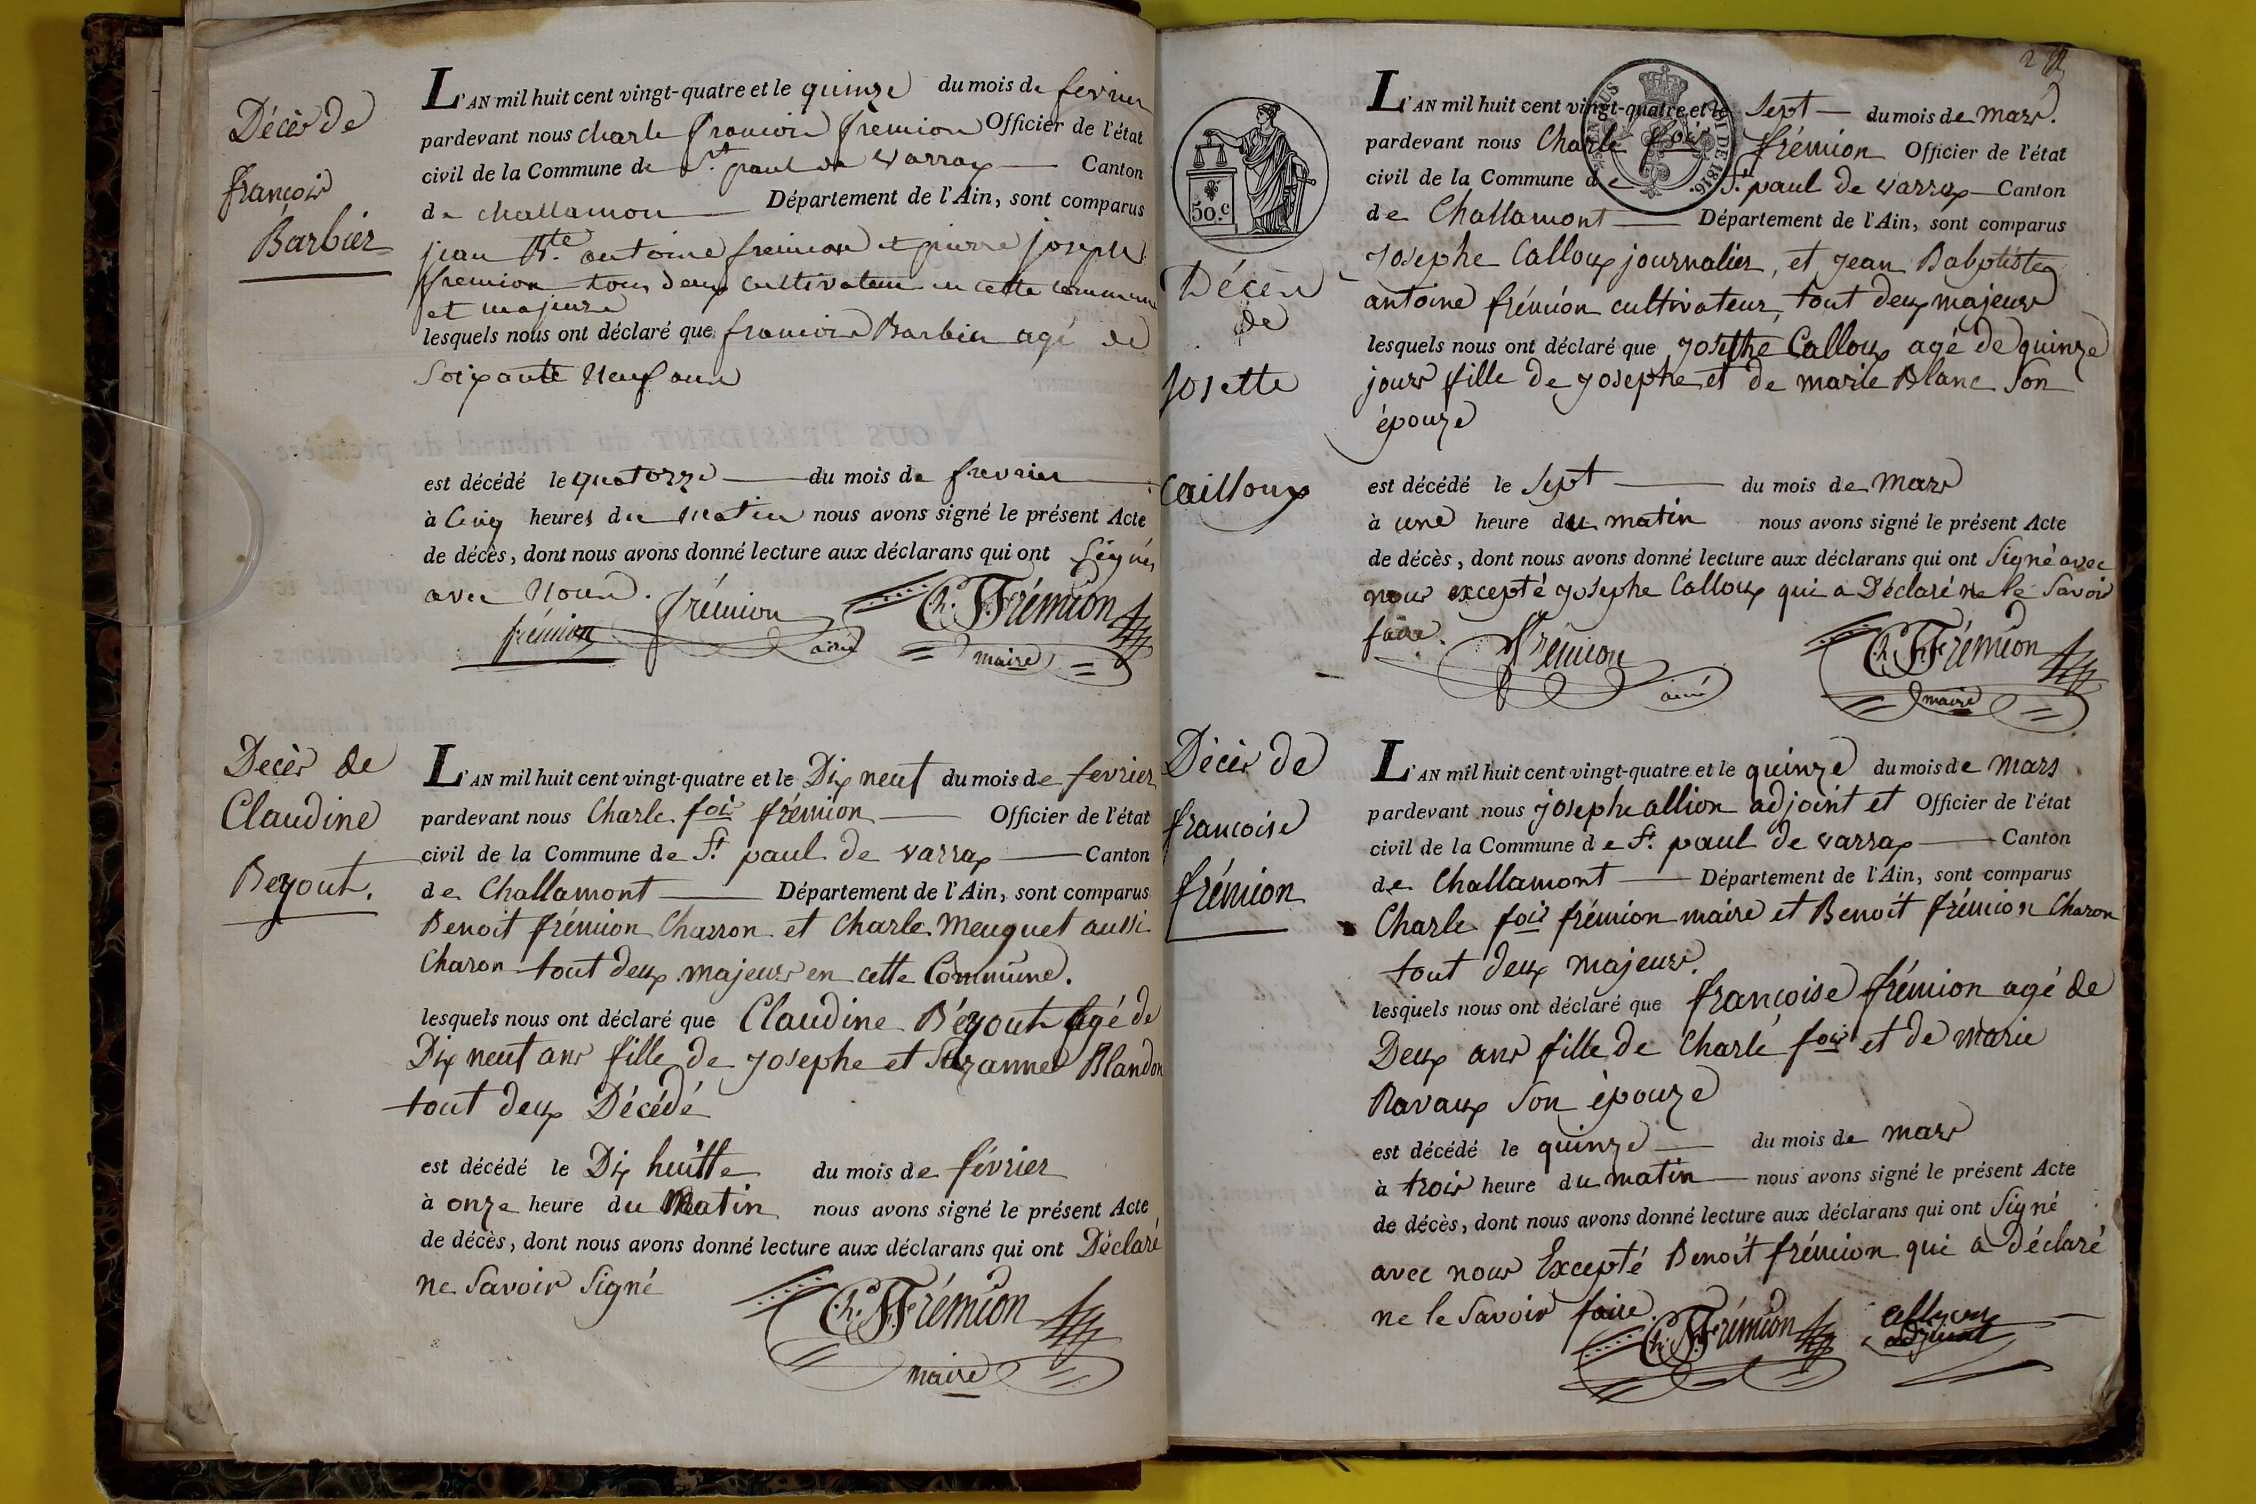 Décès de
françois
Barbier
L'AN mil huit cent vingt-quatre et le quinze du mois de fevrier
pardevant nous charle francois fremion Officier de l'état
civil de la Commune de St. paul de varrax Canton
de challamon Département de l'Ain, sont comparus
jean Bte. antoine fremion et pierre joseph
fremion tous deux cultivateur en cette commune
et majeure
lesquels nous ont déclaré que francois Barbier agé de
Soixante neuf ans
est décédé le quatorze du mois de fevrier
à Cinq heures du matin nous avons signé le présent Acte
de décès, dont nous avons donné lecture aux déclarans qui ont Signés
avec nous.
frémion frémion ainé Ch. F. Frémion
maire
Decès de
Claudine
Beyout.
L'AN mil huit cent vingt-quatre et le Dix neuf du mois de fevrier
pardevant nous Charle fois frémion Officier de l'état
civil de la Commune de St. paul de varrax Canton
de Challamont Département de l'Ain, sont comparus
Benoit frémion Charron et Charle Meuguet aussi
Charon tout deux majeurs en cette Commune.
lesquels nous ont déclaré que Claudine Béyout agé de
Dix neuf ans fille de Josephe et Suzanne Blandon
tout deux Décédé
est décédé le Dix huitte du mois de février
à onze heure du Matin nous avons signé le présent Acte
de décès, dont nous avons donné lecture aux déclarans qui ont Déclaré
ne Savoir Signé
Ch. F. Frémion
maire
50.c
Décès
de
Josette
Cailloux
L'AN mil huit cent vingt-quatre et le Sept du mois de mars.
pardevant nous Charle fois frémion Officier de l'état
civil de la Commune de St. paul de varrax Canton
de Challamont Département de l'Ain, sont comparus
Josephe Calloux journalier, et Jean Babptiste
antoine frémion cultivateur, tout deux majeurs
lesquels nous ont déclaré que Josethe Calloux agé de quinze
jours fille de Josephe et de marie Blanc Son
épouze
est décédé le Sept du mois de mars
à une heure du matin nous avons signé le présent Acte
de décès, dont nous avons donné lecture aux déclarans qui ont Signé avec
nous excepté Josephe Calloux qui a Déclaré ne le Savoir
faire.
Frémion ainé Ch. F. Frémion
maire
Décès de
francoise
frémion
L'AN mil huit cent vingt-quatre et le quinze du mois de mars
pardevant nous josephe allion adjoint et Officier de l'état
civil de la Commune de St. paul de varrax Canton
de Challamont Département de l'Ain, sont comparus
Charle fois frémion maire et Benoit frémion Charon
tout deux majeurs.
lesquels nous ont déclaré que françoise frémion agé de
Deux ans fille de Charle fois et de marie
Ravaux Son épouze
est décédé le quinze du mois de mars
à trois heure du matin nous avons signé le présent Acte
de décès, dont nous avons donné lecture aux déclarans qui ont Signé
avec nous Excepté Benoit frémion qui a Déclaré
ne le Savoir faire
Ch. F. Frémion allion
adjoint